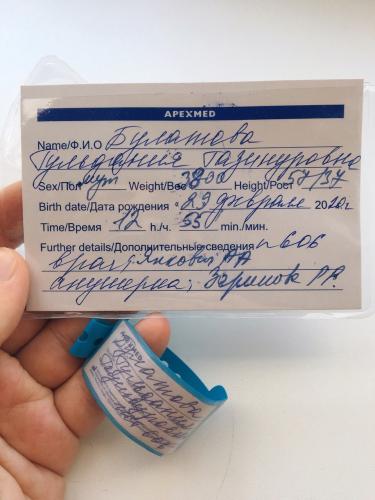 APEXMED
Name/Ф.И.О Булатова
Гульфания Газинуровна
Sex/Пол муж Weight/Вес 3800 Height/Рост 57/37
Birth date/Дата рождения " 29 февраля 2020 г
Time/Время 12 h./ч. 55 min./мин.
Further details/Дополнительные сведения п 606
врач; Янковая АА
акушерка; Зарипов РР.
Булатова
Газинуровна